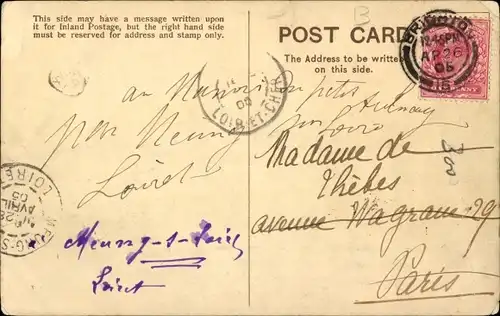 This side may have a message written upon
it for Inland Postage, but the right hand side
must be reserved for address and stamp only.
POST CARD
The Address to be written
on this side.
BRIGHTON
12.45PM
AP 26
05
PENNY
LOIR-ET-CHER
05
au
par Meung sur Loire
Loiret
Madame de
Thèbes
avenue Wagram 29
Paris
300
Meung-s-Loire
Loiret
MEUNG-S-LOIRE
28
AVRIL
05